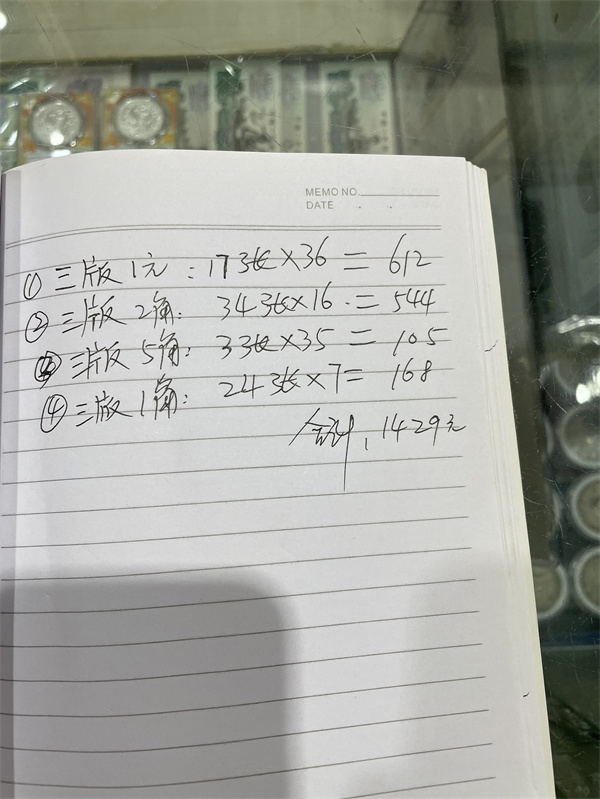 MEMO NO.
DATE . .
① 三版1元：17张×36＝612
② 三版2角：34张×16.＝544
③ 三版5角：3张×35＝105
④ 三版1角：24张×7＝168
合计，1429元